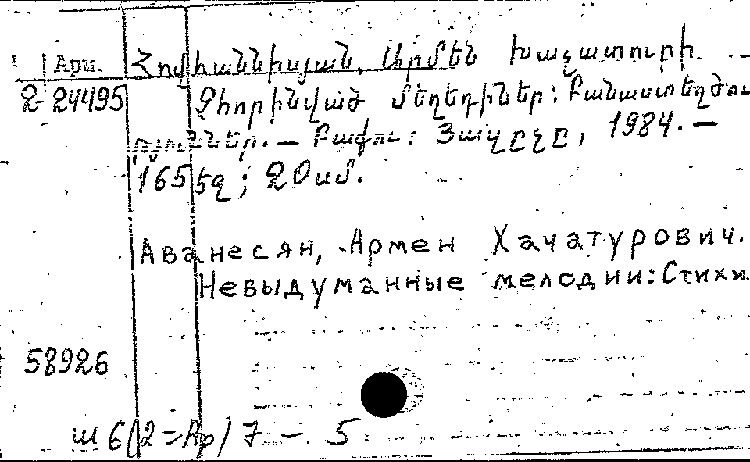 Арм. Հովհաննիսյան, Արմեն Խաչատուրի.
2-24495 Չհորինված մեղեդիներ: Բանաստեղծու
թյուններ. — Բաքու: Յազըչը, 1984. —
165 էջ; 20 սմ.
Аванесян, Армен Хачатурович.
Невыдуманные мелодии: Стихи.
58926
ш6(2=Ар)7 - 5